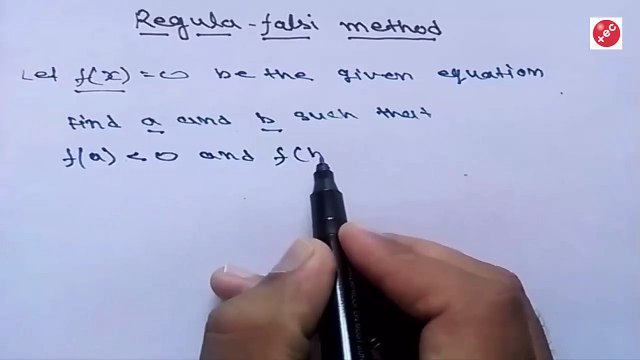 Regula-falsi method
tec
Let f(x)=0 be the given equation
Find a and b such that
f(a)<0 and f(b